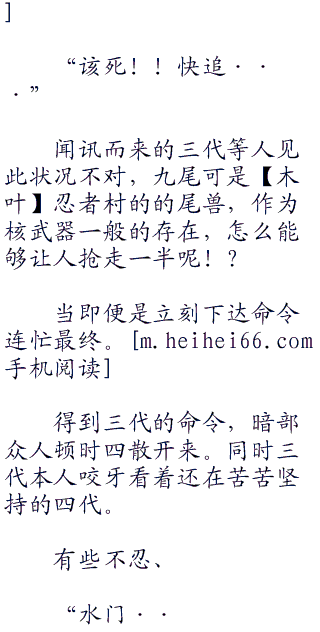 ]
“该死！！快追··
·”
闻讯而来的三代等人见
此状况不对，九尾可是【木
叶】忍者村的的尾兽，作为
核武器一般的存在，怎么能
够让人抢走一半呢！？
当即便是立刻下达命令
连忙最终。[m.heihei66.com
手机阅读]
得到三代的命令，暗部
众人顿时四散开来。同时三
代本人咬牙看着还在苦苦坚
持的四代。
有些不忍、
“水门··